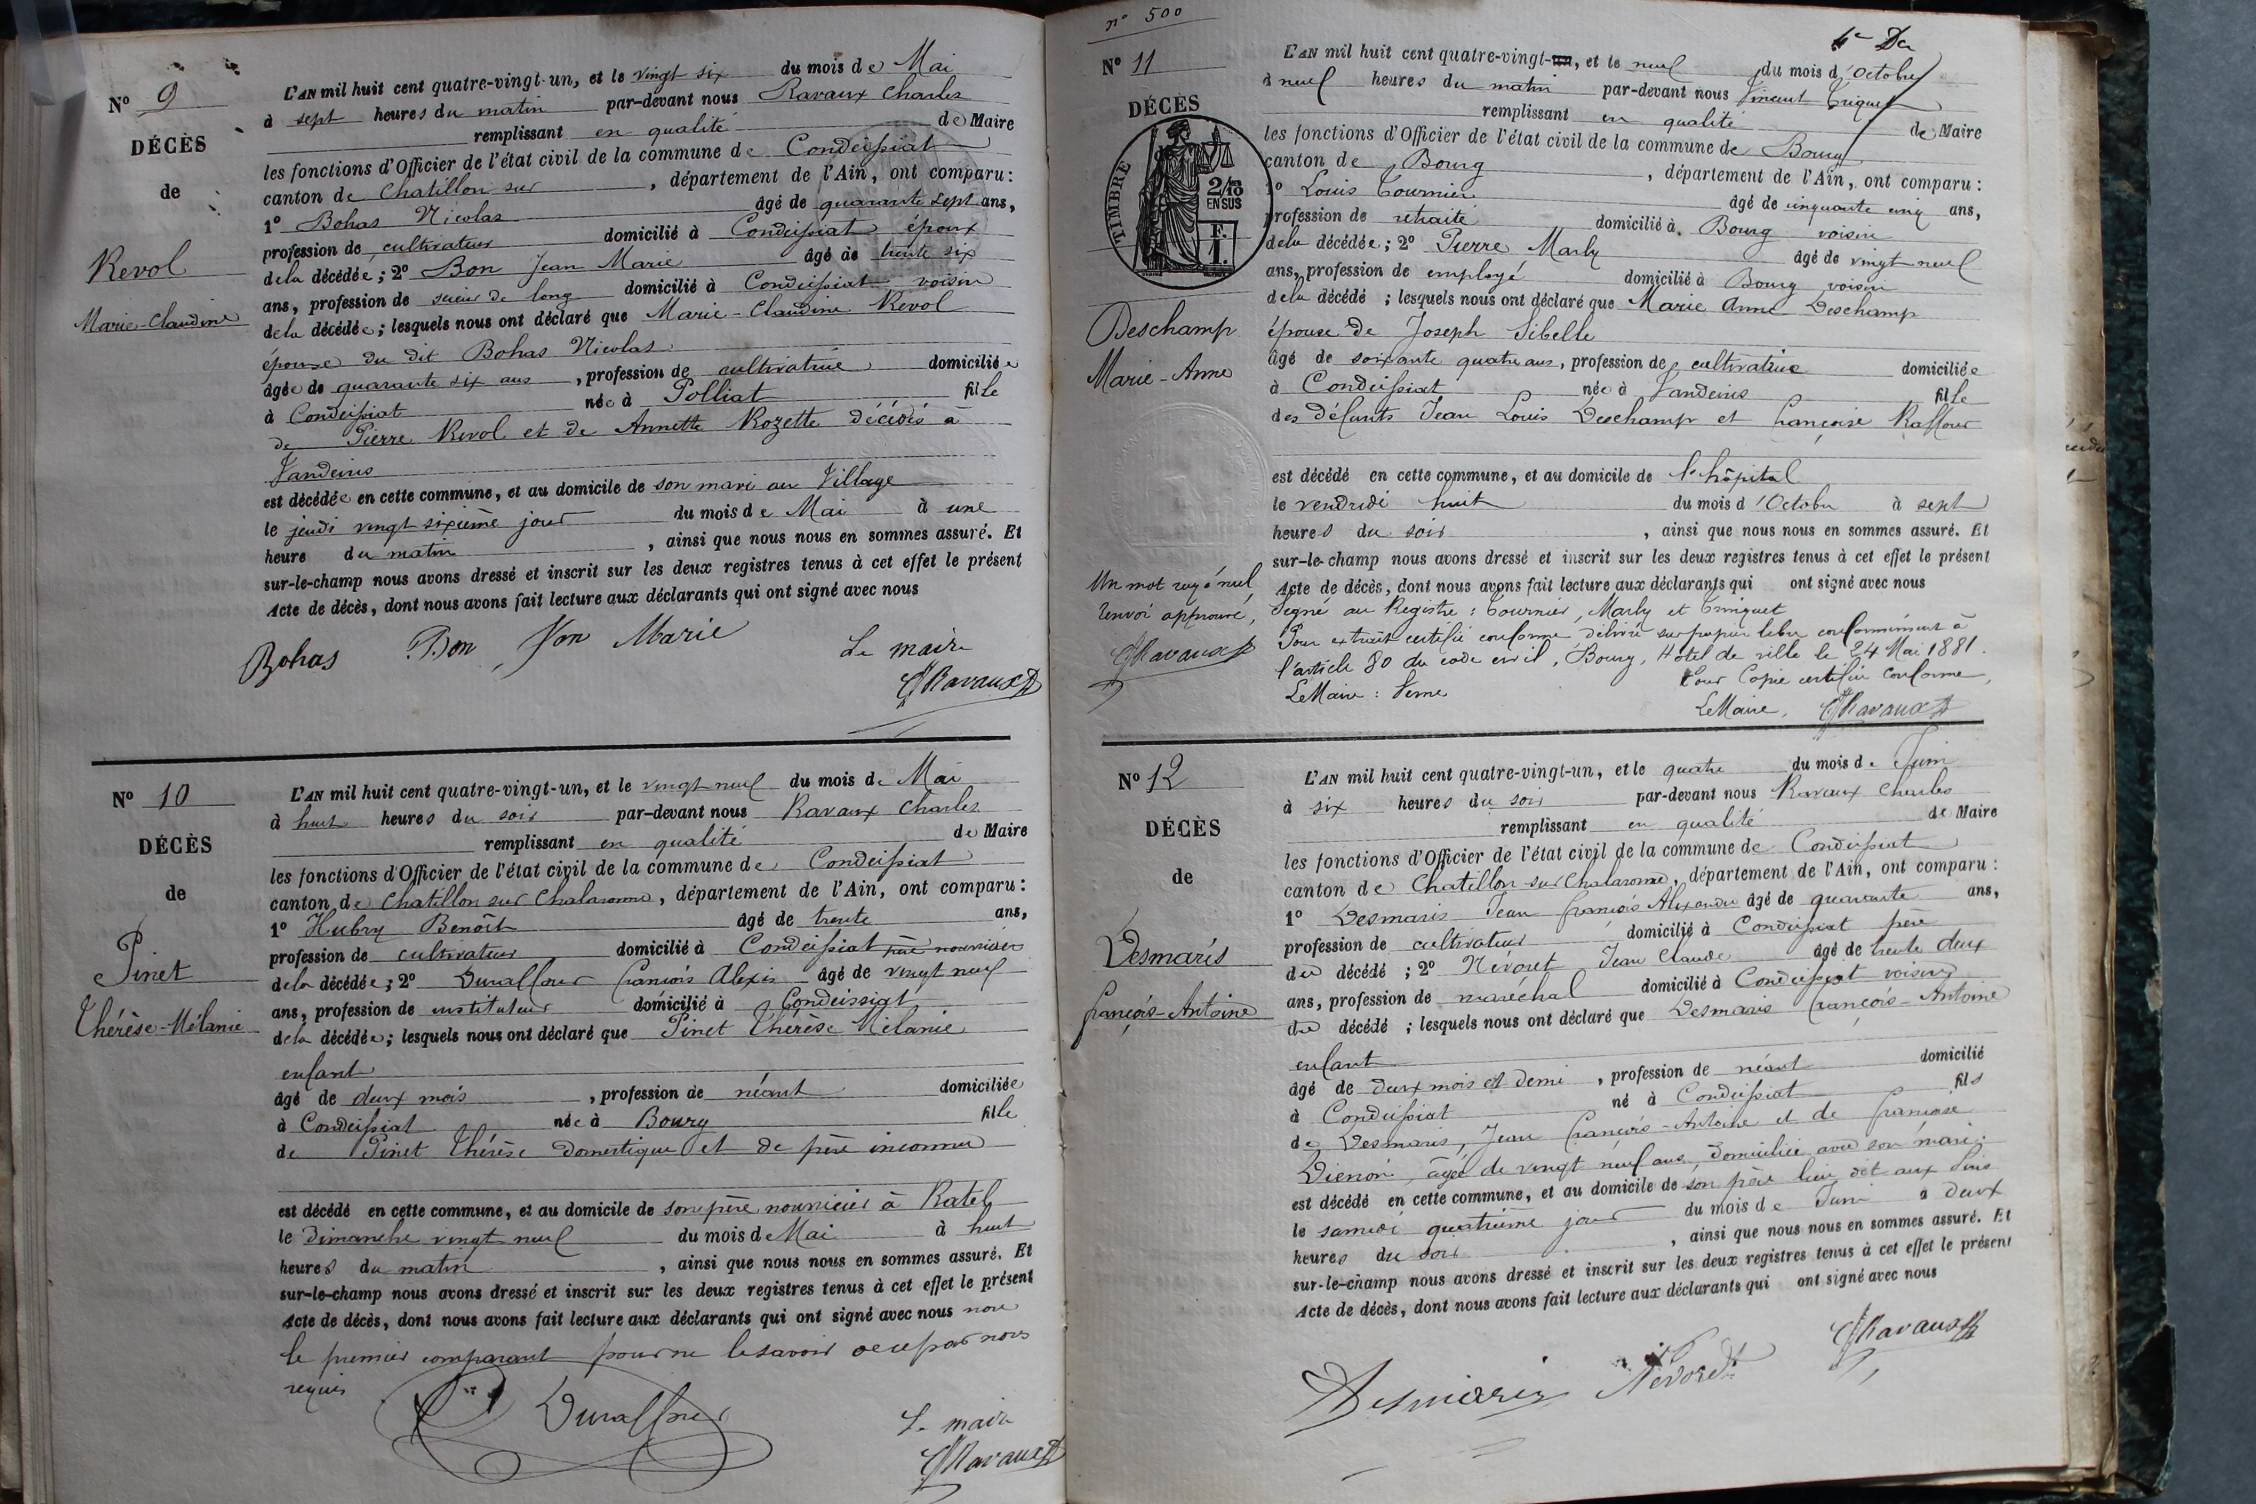 N° 9
DÉCÈS
de
Revol
Marie-Claudine
L'AN mil huit cent quatre-vingt-un, et le vingt six du mois de Mai
à sept heures du matin par-devant nous Ravaux Charles
remplissant en qualité de Maire
les fonctions d'Officier de l'état civil de la commune de Condeissiat
canton de Chatillon sur , département de l'Ain, ont comparu :
1° Bohas Nicolas âgé de quarante sept ans,
profession de cultivateur domicilié à Condeissiat époux
de la décédée ; 2° Bon Jean Marie âgé de trente six
ans, profession de scieur de long domicilié à Condeissiat voisin
de la décédée ; lesquels nous ont déclaré que Marie-Claudine Revol
épouse du dit Bohas Nicolas
âgée de quarante six ans , profession de cultivatrice domiciliée
à Condeissiat née à Polliat fille
de Pierre Revol et de Annette Rozette décédés à
Vandeins
est décédée en cette commune, et au domicile de son mari au Village
le jeudi vingt sixième jour du mois de Mai à une
heure du matin , ainsi que nous nous en sommes assuré. Et
sur-le-champ nous avons dressé et inscrit sur les deux registres tenus à cet effet le présent
Acte de décès, dont nous avons fait lecture aux déclarants qui ont signé avec nous
Bohas Bon Marie Le maire
Ravaux
N° 10
DÉCÈS
de
Pinet
Thérèse-Mélanie
L'AN mil huit cent quatre-vingt-un, et le vingt neuf du mois de Mai
à huit heures du soir par-devant nous Ravaux Charles
remplissant en qualité de Maire
les fonctions d'Officier de l'état civil de la commune de Condeissiat
canton de Chatillon sur Chalaronne, département de l'Ain, ont comparu :
1° Hubry Benoît âgé de trente ans,
profession de cultivateur domicilié à Condeissiat père nourricier
de la décédée ; 2° Duraffour François Alexis âgé de vingt neuf
ans, profession de instituteur domicilié à Condeissiat
de la décédée ; lesquels nous ont déclaré que Pinet Thérèse Mélanie
enfant
âgé de deux mois , profession de néant domiciliée
à Condeissiat née à Bourg fille
de Pinet Thérèse domestique et de père inconnu
est décédé en cette commune, et au domicile de son père nourricier à Ratel
le Dimanche vingt neuf du mois de Mai à huit
heures du matin , ainsi que nous nous en sommes assuré. Et
sur-le-champ nous avons dressé et inscrit sur les deux registres tenus à cet effet le présent
Acte de décès, dont nous avons fait lecture aux déclarants qui ont signé avec nous non
le premier comparant pour ne le savoir de ce par nous
requis
Duraffour Le maire
Ravaux
n° 500
N° 11
DÉCÈS
TIMBRE
2/10
EN SUS
F.
1.
Deschamp
Marie-Anne
L'AN mil huit cent quatre-vingt-un, et le neuf du mois d'Octobre
à neuf heures du matin par-devant nous Vincent Triquet
remplissant en qualité de Maire
les fonctions d'Officier de l'état civil de la commune de Bourg
canton de Bourg , département de l'Ain, ont comparu :
1° Louis Tournier âgé de cinquante cinq ans,
profession de retraité domicilié à Bourg voisin
de la décédée ; 2° Pierre Marly âgé de vingt neuf
ans, profession de employé domicilié à Bourg voisin
de la décédé ; lesquels nous ont déclaré que Marie Anne Deschamp
épouse de Joseph Sibelle
âgé de soixante quatre ans, profession de cultivatrice domiciliée
à Condeissiat née à Vandeins fille
des défunts Jean Louis Deschamp et Françoise Raffour
est décédé en cette commune, et au domicile de l'hôpital
le vendredi huit du mois d'Octobre à sept
heures du soir , ainsi que nous nous en sommes assuré. Et
sur-le-champ nous avons dressé et inscrit sur les deux registres tenus à cet effet le présent
Acte de décès, dont nous avons fait lecture aux déclarants qui ont signé avec nous
Signé au Registre : Tournier, Marly et Triquet
Pour extrait certifié conforme délivré sur papier libre conformément à
l'article 80 du code civil, Bourg, Hôtel de ville le 24 Mai 1881.
Le Maire : Verne Pour Copie certifiée conforme,
Le Maire, Ravaux
Un mot rayé nul
renvoi approuvé,
Ravaux
N° 12
DÉCÈS
de
Desmaris
François-Antoine
L'AN mil huit cent quatre-vingt-un, et le quatre du mois de Juin
à six heures du soir par-devant nous Ravaux Charles
remplissant en qualité de Maire
les fonctions d'Officier de l'état civil de la commune de Condeissiat
canton de Chatillon-sur Chalaronne, département de l'Ain, ont comparu :
1° Desmaris Jean François Alexandre âgé de quarante ans,
profession de cultivateur domicilié à Condeissiat père
du décédé ; 2° Névoret Jean Claude âgé de trente deux
ans, profession de maréchal domicilié à Condeissiat voisin
du décédé ; lesquels nous ont déclaré que Desmaris François-Antoine
enfant
âgé de deux mois et demi , profession de néant domicilié
à Condeissiat né à Condeissiat fils
de Desmaris, Jean François-Antoine et de Françoise
âgée de vingt neuf ans, domiciliée avec son mari.
est décédé en cette commune, et au domicile de son père lieu dit aux
le samedi quatrième jour du mois de Juin à deux
heures du soir , ainsi que nous nous en sommes assuré. Et
sur-le-champ nous avons dressé et inscrit sur les deux registres tenus à cet effet le présent
Acte de décès, dont nous avons fait lecture aux déclarants qui ont signé avec nous
Ravaux
Desmaris Névoret